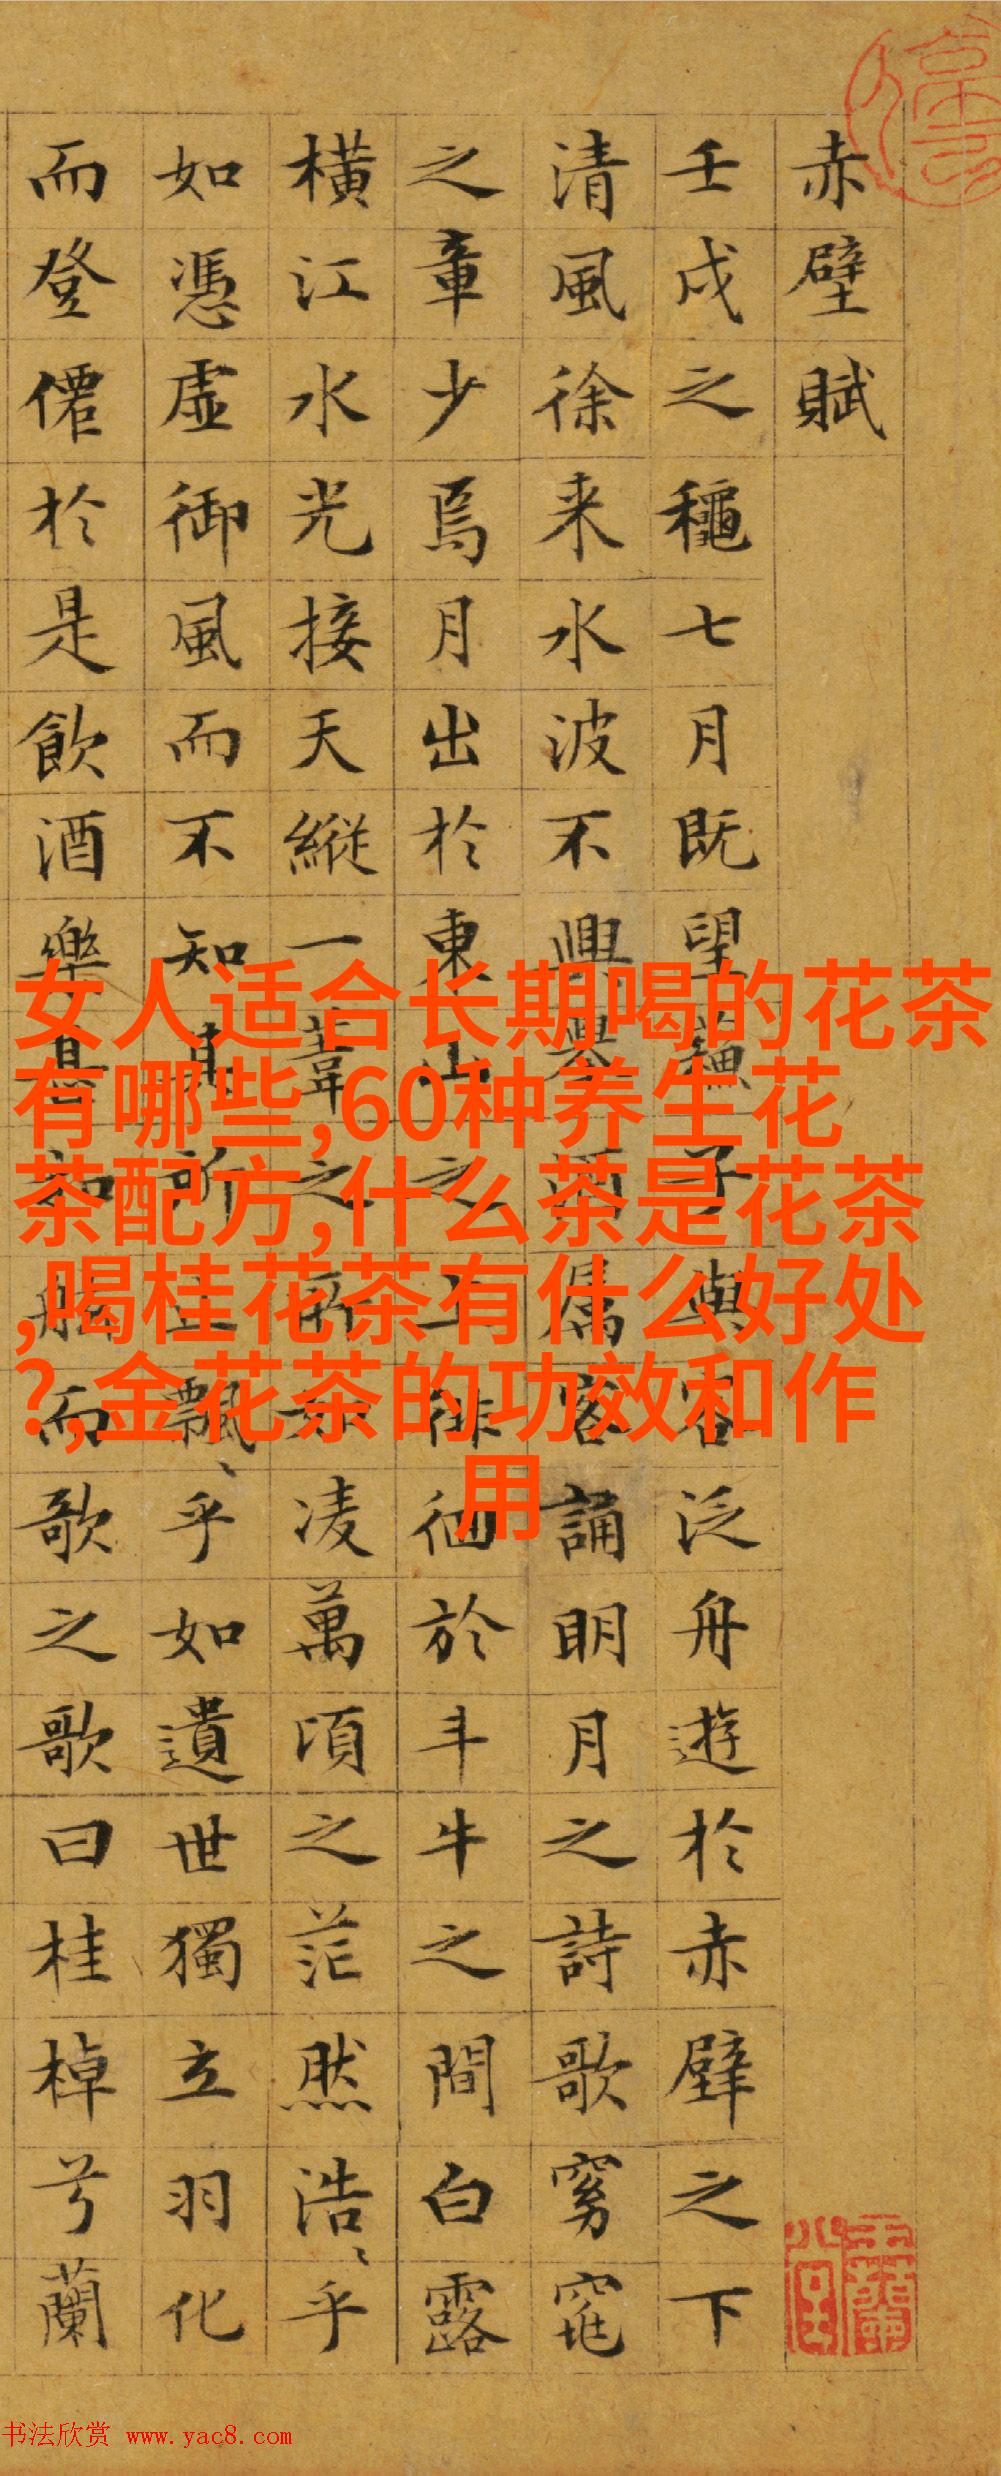 赤壁賦
壬戌之穐七月既望蘓子與客泛舟遊於赤壁之下
清風徐来水波不興舉酒属客誦明月之詩歌窈窕
之章少焉月出於東山之上徘徊於斗牛之間白露
橫江水光接天縱一葦之所如凌萬頃之茫然浩〻乎
如憑虛御風而不知其所止飄〻乎如遺世獨立羽化
而登僊於是飲酒樂甚扣舷而歌之歌曰桂棹兮蘭
女人适合长期喝的花茶
有哪些,60种养生花
茶配方,什么茶是花茶
,喝桂花茶有什么好处
?,金花茶的功效和作
用
书法欣赏 www.yac8.com